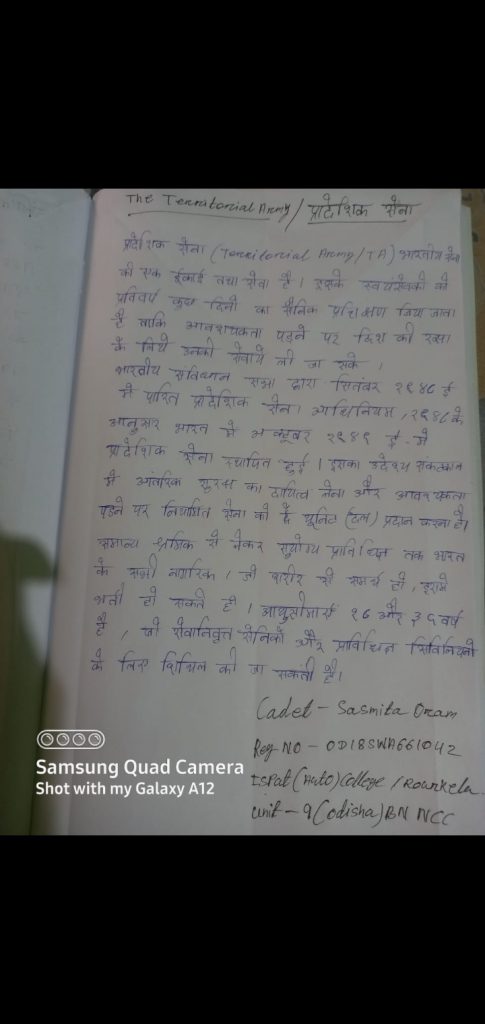 The Territorial Army / प्रादेशिक सेना
प्रादेशिक सेना (Territorial Army/TA) भारतीय सेना
की एक ईकाई तथा सेवा है। इसके स्वयंसेवकों को
प्रतिवर्ष कुछ दिनों का सैनिक प्रशिक्षण दिया जाता
है ताकि आवश्यकता पड़ने पर देश की रक्षा
के लिये उनकी सेवायें ली जा सके।
भारतीय संविधान सभा द्वारा सितंबर १९४८ ई
में पारित प्रादेशिक सेना अधिनियम, १९४८ के
अनुसार भारत में अक्टूबर १९४९ ई. में
प्रादेशिक सेना स्थापित हुई। इसका उद्देश्य संकटकाल
में आंतरिक सुरक्षा का दायित्व लेना और आवश्यकता
पड़ने पर नियमित सेना को यूनिट (दल) प्रदान करना है।
सामान्य श्रमिक से लेकर सुयोग्य प्राविधिज्ञ तक भारत
के सभी नागरिक, जो शरीर से समर्थ हों, इसमें
भर्ती हो सकते हैं। आयुसीमाएँ १८ और ३५ वर्ष
है, जो सेवानिवृत्त सैनिकों और प्राविधिज्ञ सिविलियनों
के लिए शिथिल की जा सकती है।
Cadet - Sasmita Oram
Reg-NO - OD18SWA661042
ISPat (Auto) College / Rourkela
Unit - 9 (Odisha) BN NCC
Samsung Quad Camera
Shot with my Galaxy A12